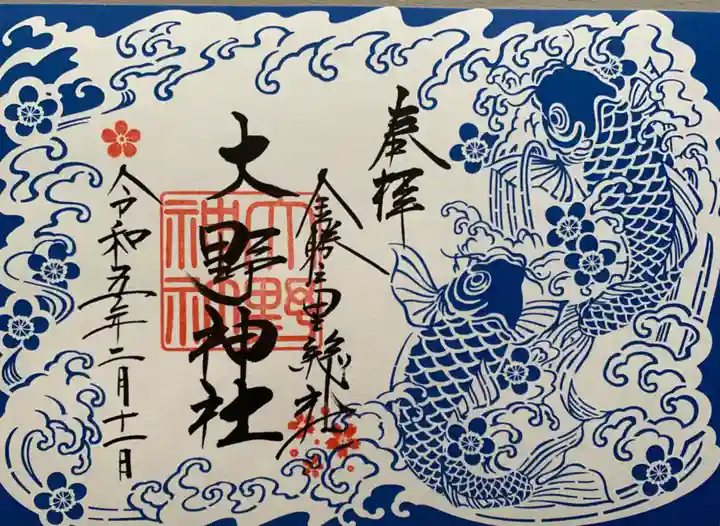 奉拝
金勝 里総社
大野神社
大野神社
令和五年二月十一日